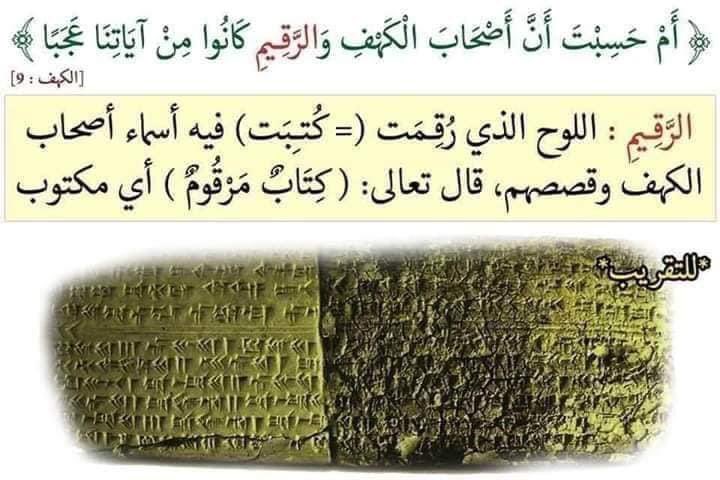 ﴿ أَمْ حَسِبْتَ أَنَّ أَصْحَابَ الْكَهْفِ وَالرَّقِيمِ كَانُوا مِنْ آيَاتِنَا عَجَبًا ﴾
[الكهف : 9]
الرَّقِيمِ : اللوح الذي رُقِمَت (= كُتِبَت) فيه أسماء أصحاب
الكهف وقصصهم، قال تعالى: ( كِتَابٌ مَرْقُومٌ ) أي مكتوب
*للتقريب*